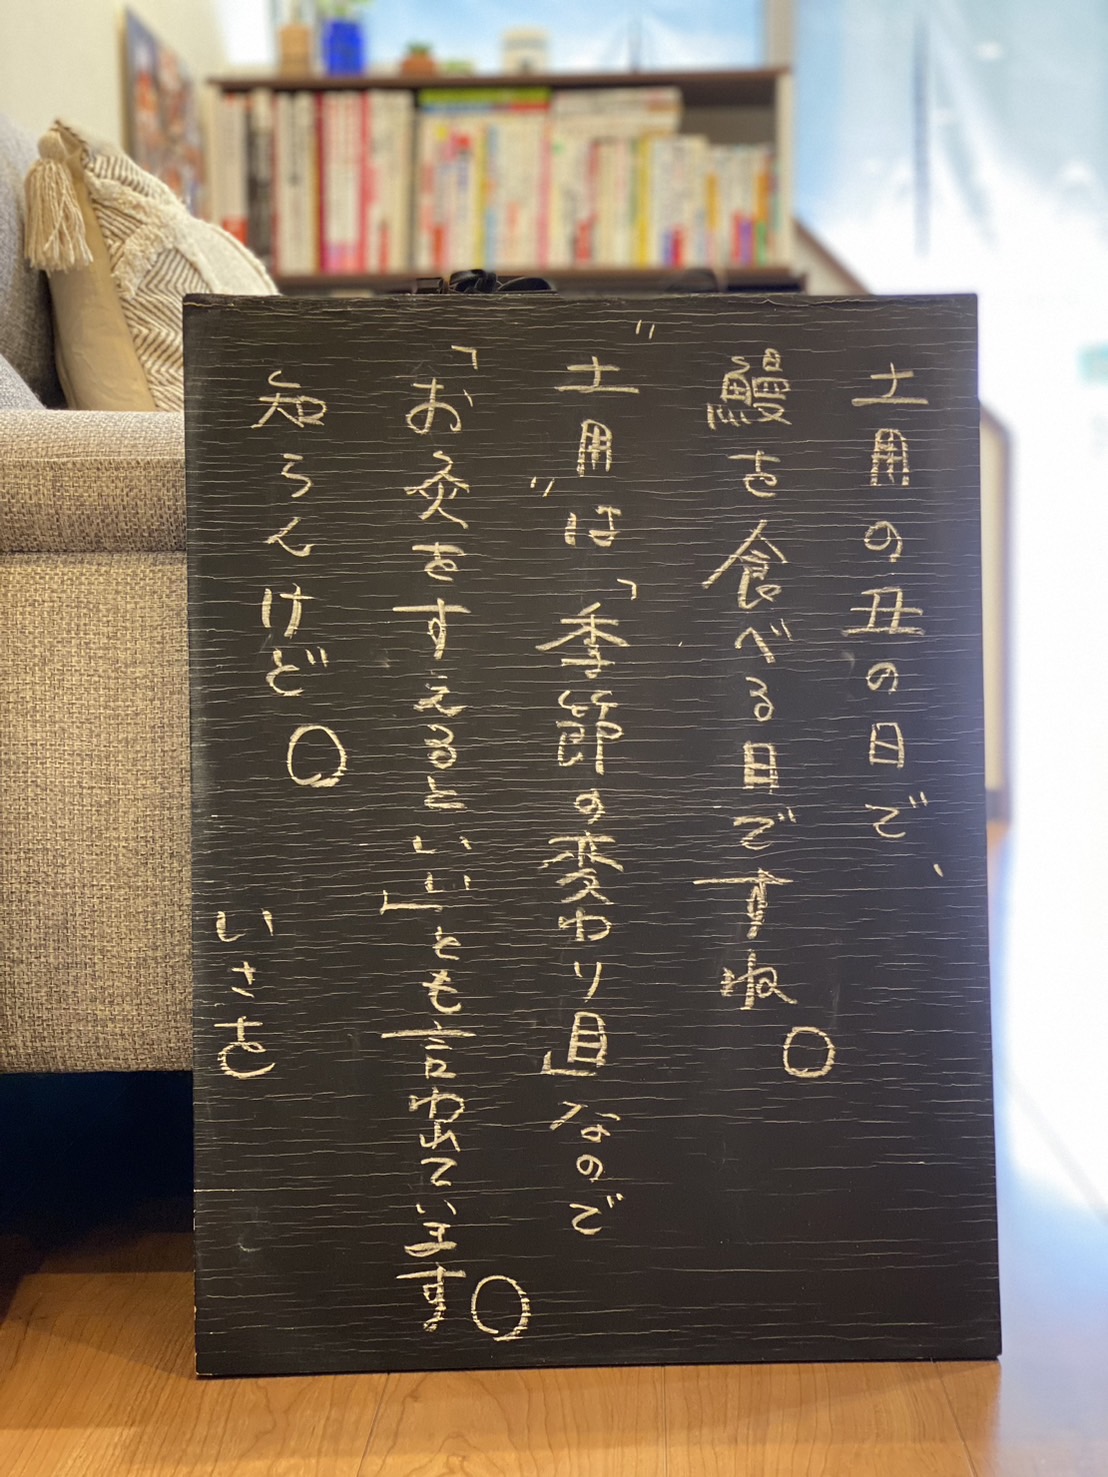 土用の丑の日で、
鰻を食べる日ですね。
〝土用〟は「季節の変わり目」なので
「お灸をすえるといい」とも言われています。
知らんけど。
いさを